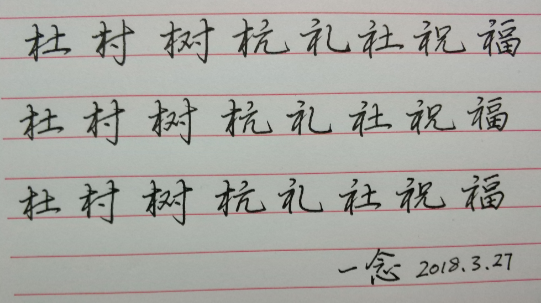 杜村树杭礼社祝福
杜村树杭礼社祝福
杜村树杭礼社祝福
一念 2018.3.27